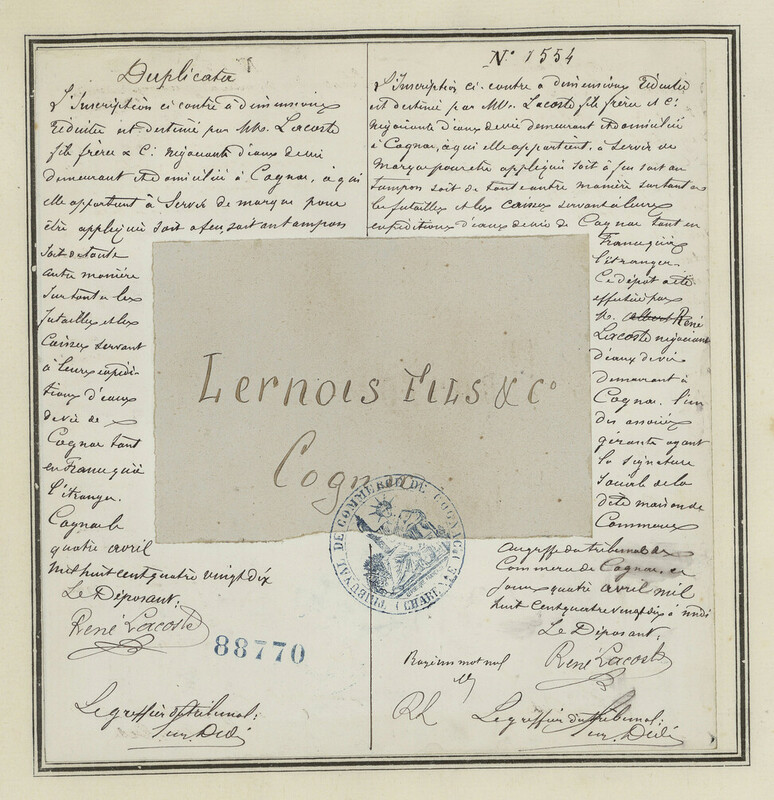 Duplicata
L'Inscription ci contre à dimensions
réduites est destiné par MM. Lacoste
fils frère & Cie négociants d'eaux de vie
demeurant et domicilié à Cognac, à qui
elle appartient à servir de marque pour
être appliquée soit à feu soit au tampon
soit de toute
autre manière
sur toutes les
futailles et les
caisses servant
à leurs expédi-
tions d'eaux
de vie de
Cognac tant
en France qu'à
l'étranger.
Cognac le
quatre avril
mil huit cent quatre vingt dix
Le Déposant:
René Lacoste
88770
Le greffier du tribunal:
N° 1554
L'Inscription ci-contre à dimensions réduites
est destiné par MM. Lacoste fils frère et Cie
négociants d'eaux de vie demeurant et domicilié
à Cognac, à qui elle appartient, à servir de
marque pour être appliqué soit à feu soit au
tampon soit de toute autre manière sur toutes
les futailles et les caisses servant à leurs
expéditions d'eaux de vie de Cognac tant en
France qu'à
l'étranger.
Ce dépôt a été
effectué par
M. Albert René
Lacoste négociant
d'eaux de vie
demeurant à
Cognac. l'un
des associés
gérants ayant
la signature
sociale de la
dite maison de
Commerce
au greffe du tribunal de
Commerce de Cognac, ce
jour quatre avril mil
huit cent quatre vingt dix à midi
Le Déposant:
René Lacoste
Rayé un mot nul
RL
Le greffier du tribunal:
Lernois Fils & Co
Cogn
TRIBUNAL DE COMMERCE DE COGNAC
(CHARENTE)